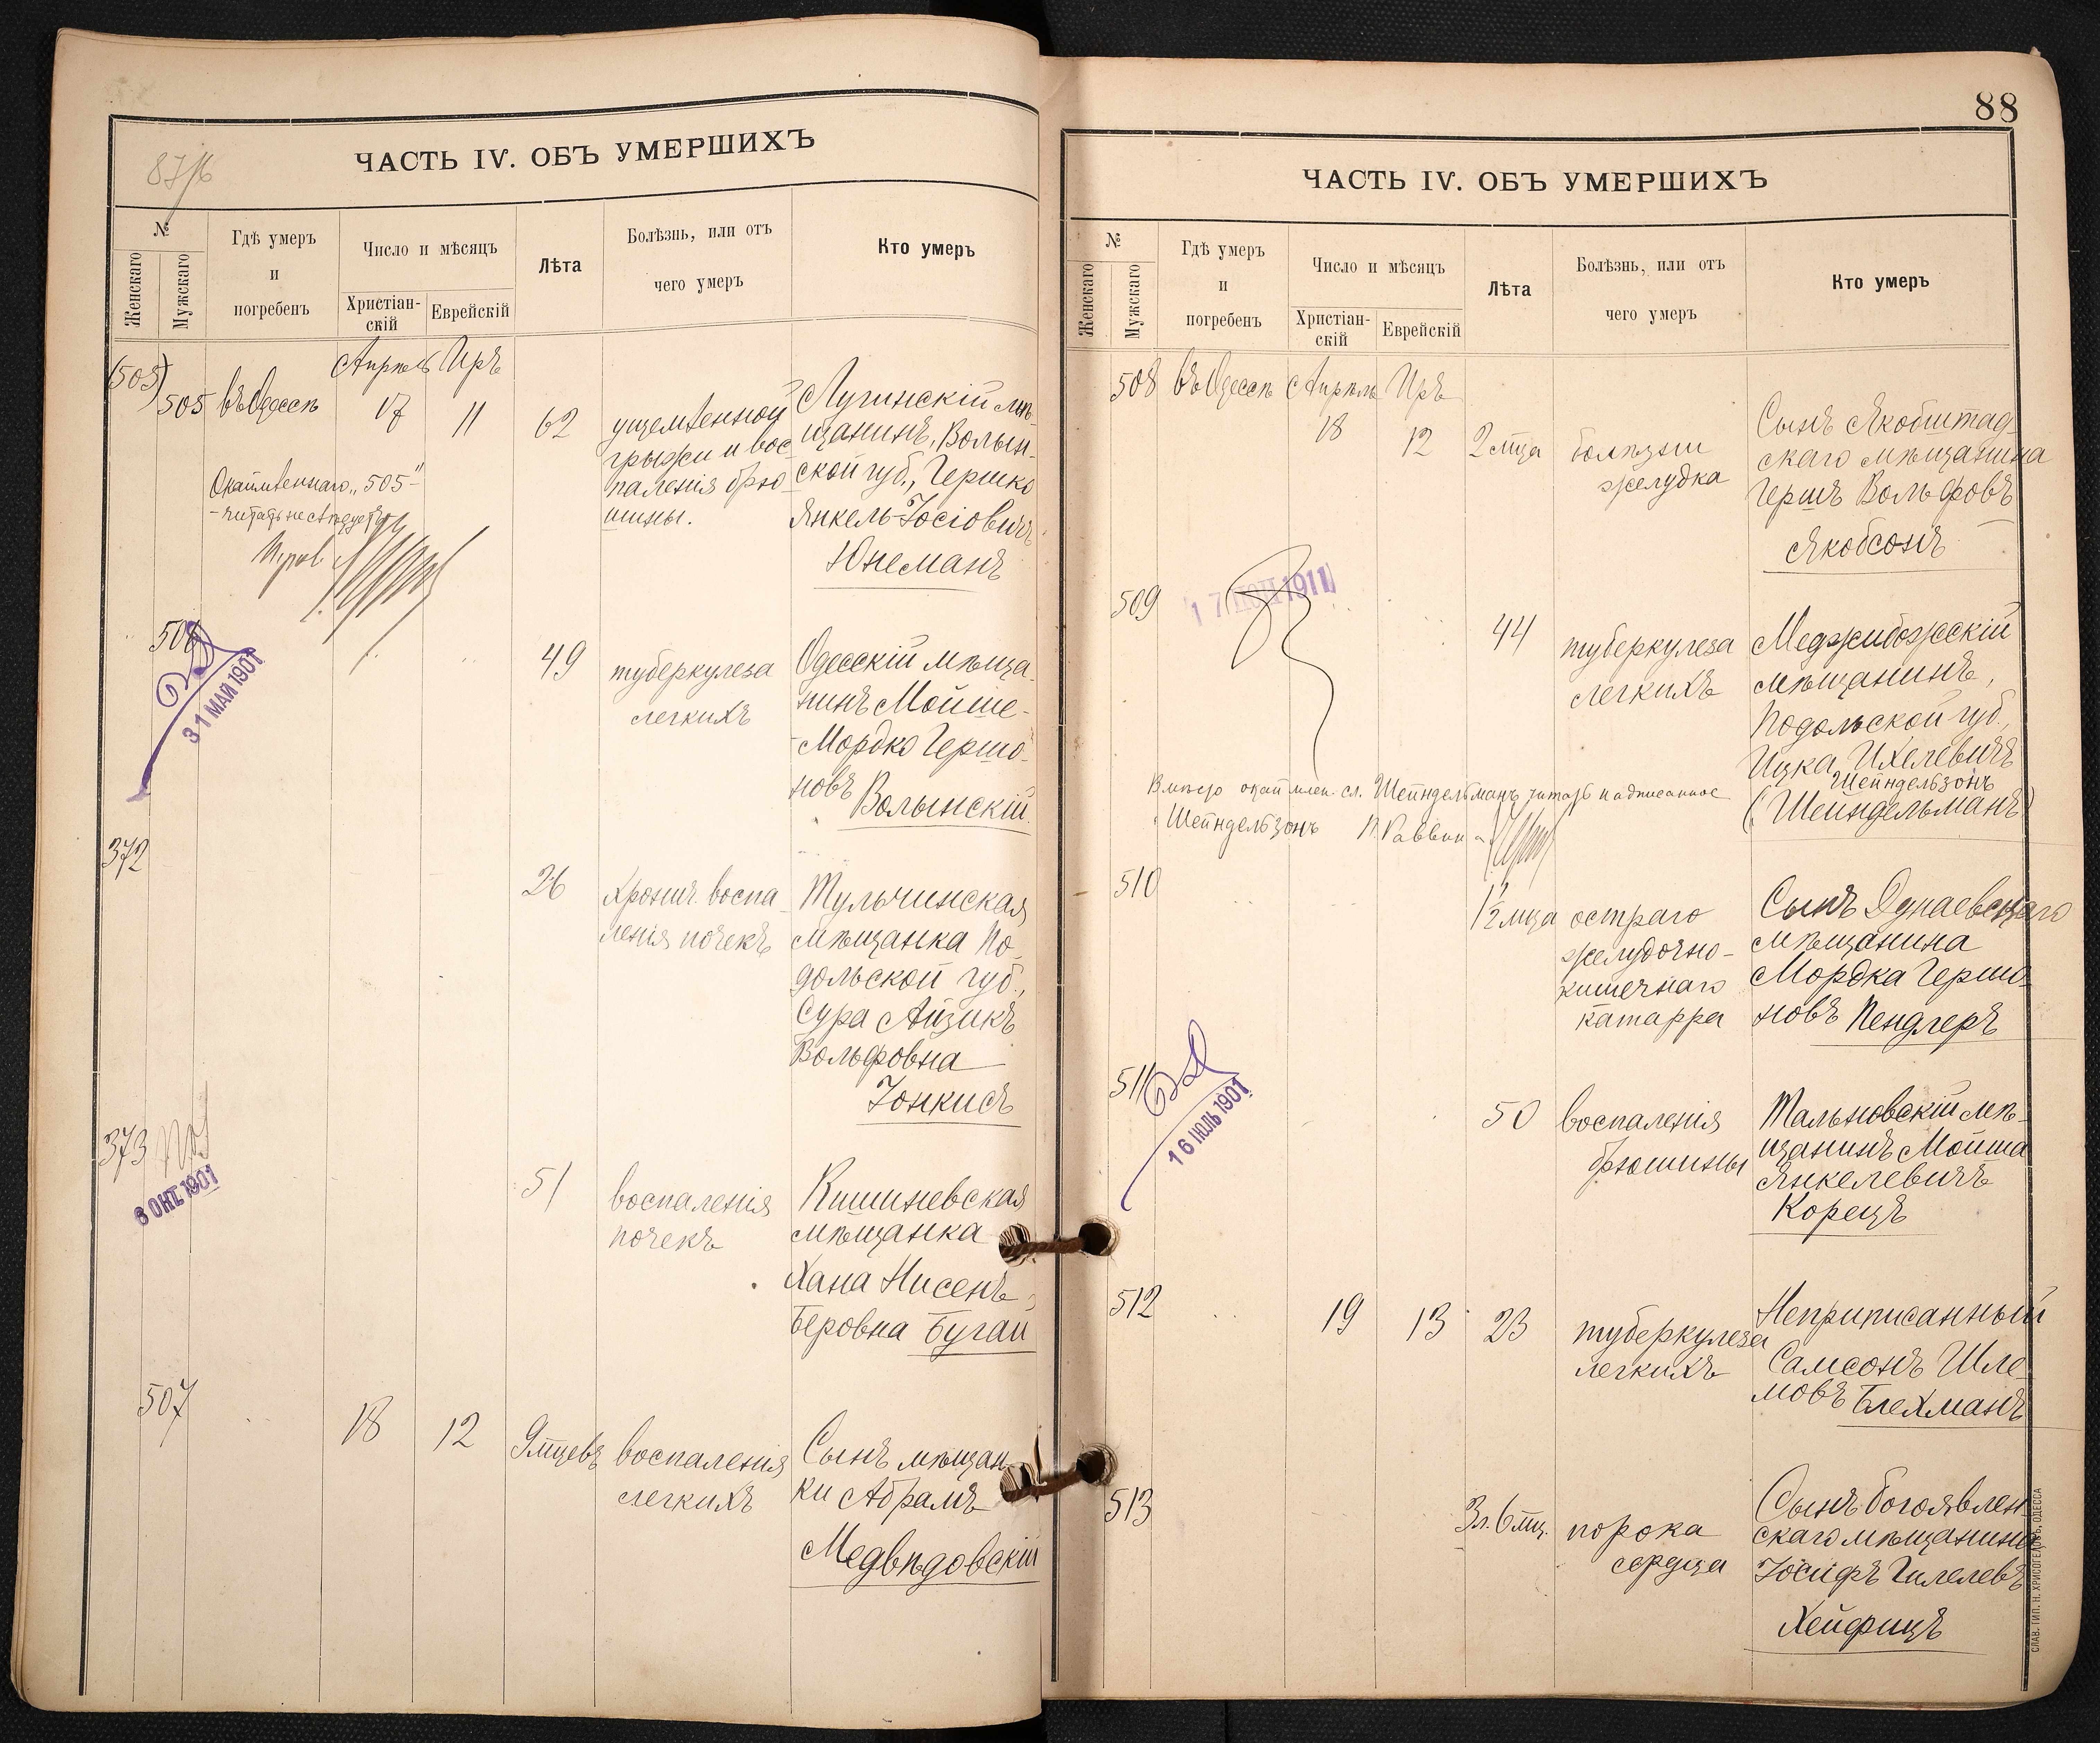 87/б
ЧАСТЬ IV. ОБЪ УМЕРШИХЪ
№
Женскаго
Мужскаго
Гдѣ умеръ
и
погребенъ
Число и мѣсяцъ
Христіан-
скій
Еврейскій
Лѣта
Болѣзнь, или отъ
чего умеръ
Кто умеръ
(505)
505 въ Одессѣ
Апрѣль Иръ
17 11 62
ущемленной
грыжи и вос
паленія брю
шины.
Лугинскій мѣ-
щанинъ, Волын-
ской губ., Гершко
Янкель-Іосіовичъ
Юнеманъ
Окаймленнаго „505"
- читать не слѣдуетъ
506
31 МАЙ 1901
49 туберкулеза
легкихъ
Одесскій мѣща-
нинъ Мойше-
-Мордко Гершо-
новъ Волынскій
372
26 хронич. воспа-
ленія почекъ
Тульчинская
мѣщанка По-
дольской губ.,
Сура Айзикъ
Вольфовна
Іонкисъ
373
6 ОКТ. 1901
51 воспаленія
почекъ
Кишиневская
мѣщанка
Хана Нисенъ-
Беровна Бугай
507 18 12 9 мцевъ воспаленія
легкихъ
Сынъ мѣщан-
ки Абрамъ
Медвѣдовскій
88
ЧАСТЬ IV. ОБЪ УМЕРШИХЪ
№
Женскаго
Мужскаго
Гдѣ умеръ
и
погребенъ
Число и мѣсяцъ
Христіан-
скій
Еврейскій
Лѣта
Болѣзнь, или отъ
чего умеръ
Кто умеръ
508 въ Одессѣ Апрѣль Иръ
18 12 2 мца болѣзни
желудка
Сынъ Якобштад-
скаго мѣщанина
Гершъ Вольфовъ
Якобсонъ
509
1911
44 туберкулеза
легкихъ
Меджибожскій
мѣщанинъ,
Подольской губ.,
Ицка Ихелевичъ
Шейндельзонъ
(Шейндельманъ)
Вмѣсто окаймлен. сл. Шейндельманъ читать надписанное
Шейндельзонъ П. Раввин
510
1½ мца остраго
желудочно-
кишечнаго
катарра
Сынъ Дунаевецкаго
мѣщанина
Мордка Гершо-
новъ Пендлеръ
511
16 ІЮЛЬ 1901
50 воспаленія
брюшины
Тальновскій мѣ-
щанинъ Мойша
Янкелевичъ
Корецъ
512 19 13 23 туберкулеза
легкихъ
Неприписанный
Самсонъ Шле-
мовъ Блехманъ
513
3 л. 6 мц. порока
сердца
Сынъ богоявлен
скаго мѣщанина
Іосифъ Гилелевъ
Хейфицъ
СЛАВ. ТИП. Н. ХРИСОГЕЛОСЪ, ОДЕССА